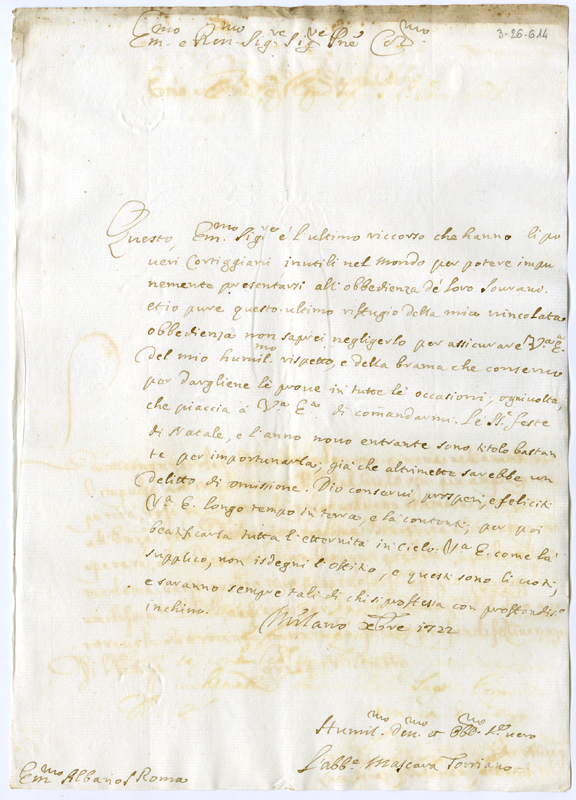 3-26-614
Em.mo e Rev.mo Sig.re Sig.re Pne Col.mo
Questo, Em.mo Sig.re é l'ultimo riccorso che hanno li po
veri Cortiggiani inutili nel mondo per potere impu
nemente presentarsi all'obbedienza dé loro Sourano.
et io pure questo ultimo riffugio della mia vincolata
obbedienza non saprei negligerlo per assicurare V.a E.a
del mio humil.mo rispetto, e della brama che conservo
per dargliene le prove in tutte le occasioni, ogni volta,
che piaccia á V.a E.a di comandarmi. Le SS.e feste
di Natale, e l'anno novo entrante sono titolo bastan
te per importunarla, giá che altrimette sarebbe un
delitto di omissione. Dio conservi, prosperi, e feliciti
V.a E. longo tempo in terra, e la contenti, per poi
beatificarla tutta l'etternitá in Cielo. V.a E. come la
supplico, non isdegni l'offitio, e questi sono li voti,
e saranno sempre tali di chi si proffessa con proffondis.o
inchino.
Milano Xbre 1722
Humil.mo Dev.mo et Obb.mo S.re vero
L'abb.e Mascara Torriano
Em.mo Albani Roma